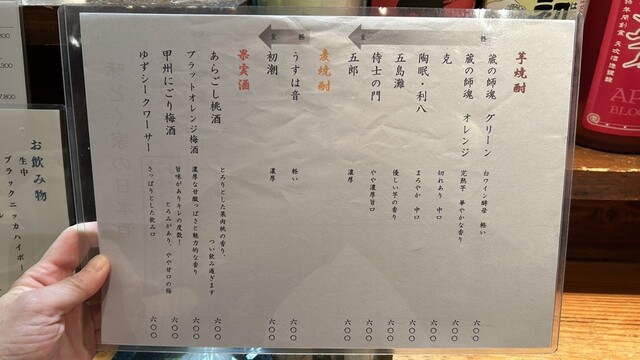 芋焼酎
軽
重
蔵の師魂 グリーン 白ワイン酵母 軽い 六〇〇
蔵の師魂 オレンジ 完熟芋 華やかな香り 六〇〇
克 切れあり 中口 六〇〇
陶眠・利八 まろやか 中口 六〇〇
五島灘 優しい芋の香り 六〇〇
侍士の門 やや濃厚旨口 六〇〇
五郎 濃厚 六〇〇
麦焼酎
軽
重
うすは音 軽い 六〇〇
初潮 濃厚 六〇〇
果実酒
あらごし桃酒 とろりとした果肉桃の香り、
つい飲み過ぎます 六〇〇
ブラットオレンジ梅酒 濃厚な甘酸っぱさと魅力的な香り 六〇〇
甲州にごり梅酒 旨味がありキレの度数!
とろみがあり、やや甘口の梅 六〇〇
ゆずシークワーサー さっぱりとした飲み口 六〇〇
お飲み物
生中
ブラックニッカハイボー